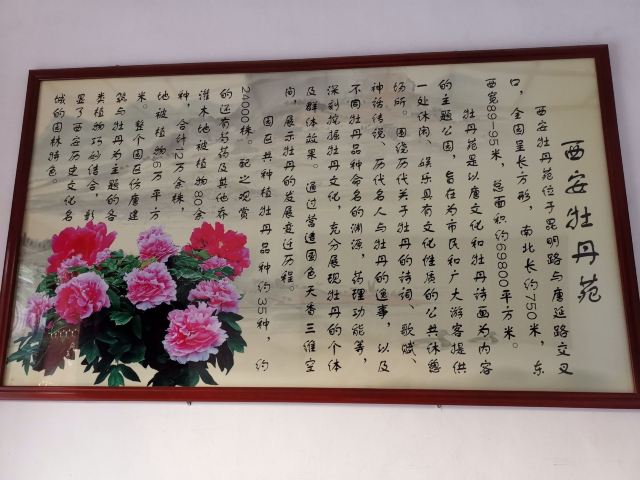 西安牡丹苑
西安牡丹苑位于昆明路与唐延路交叉
口，全园呈长方形，南北长约750米，东
西宽89-95米，总面积约69800平方米。
牡丹苑是以唐文化和牡丹诗画为内容
的主题公园，旨在为市民和广大游客提供
一处休闲、娱乐具有文化性质的公共休憩
场所。围绕历代关于牡丹的诗词、歌赋、
神话传说、历代名人与牡丹的逸事，以及
不同牡丹品种命名的渊源，药理功能等，
深刻挖掘牡丹文化，充分展现牡丹的个体
及群体效果。通过营造国色天香三维空
间，展示牡丹的发展变迁历程。
园区共种植牡丹品种约35种，约
24000株。配之观赏
的还有芍药及其他乔
灌木地被植物80余
种，合计12万余株，
地被植物3.6万平方
米。整个园区仿唐建
筑与牡丹为主题的各
类植物巧妙结合，彰
显了西安历史文化名
城的园林特色。